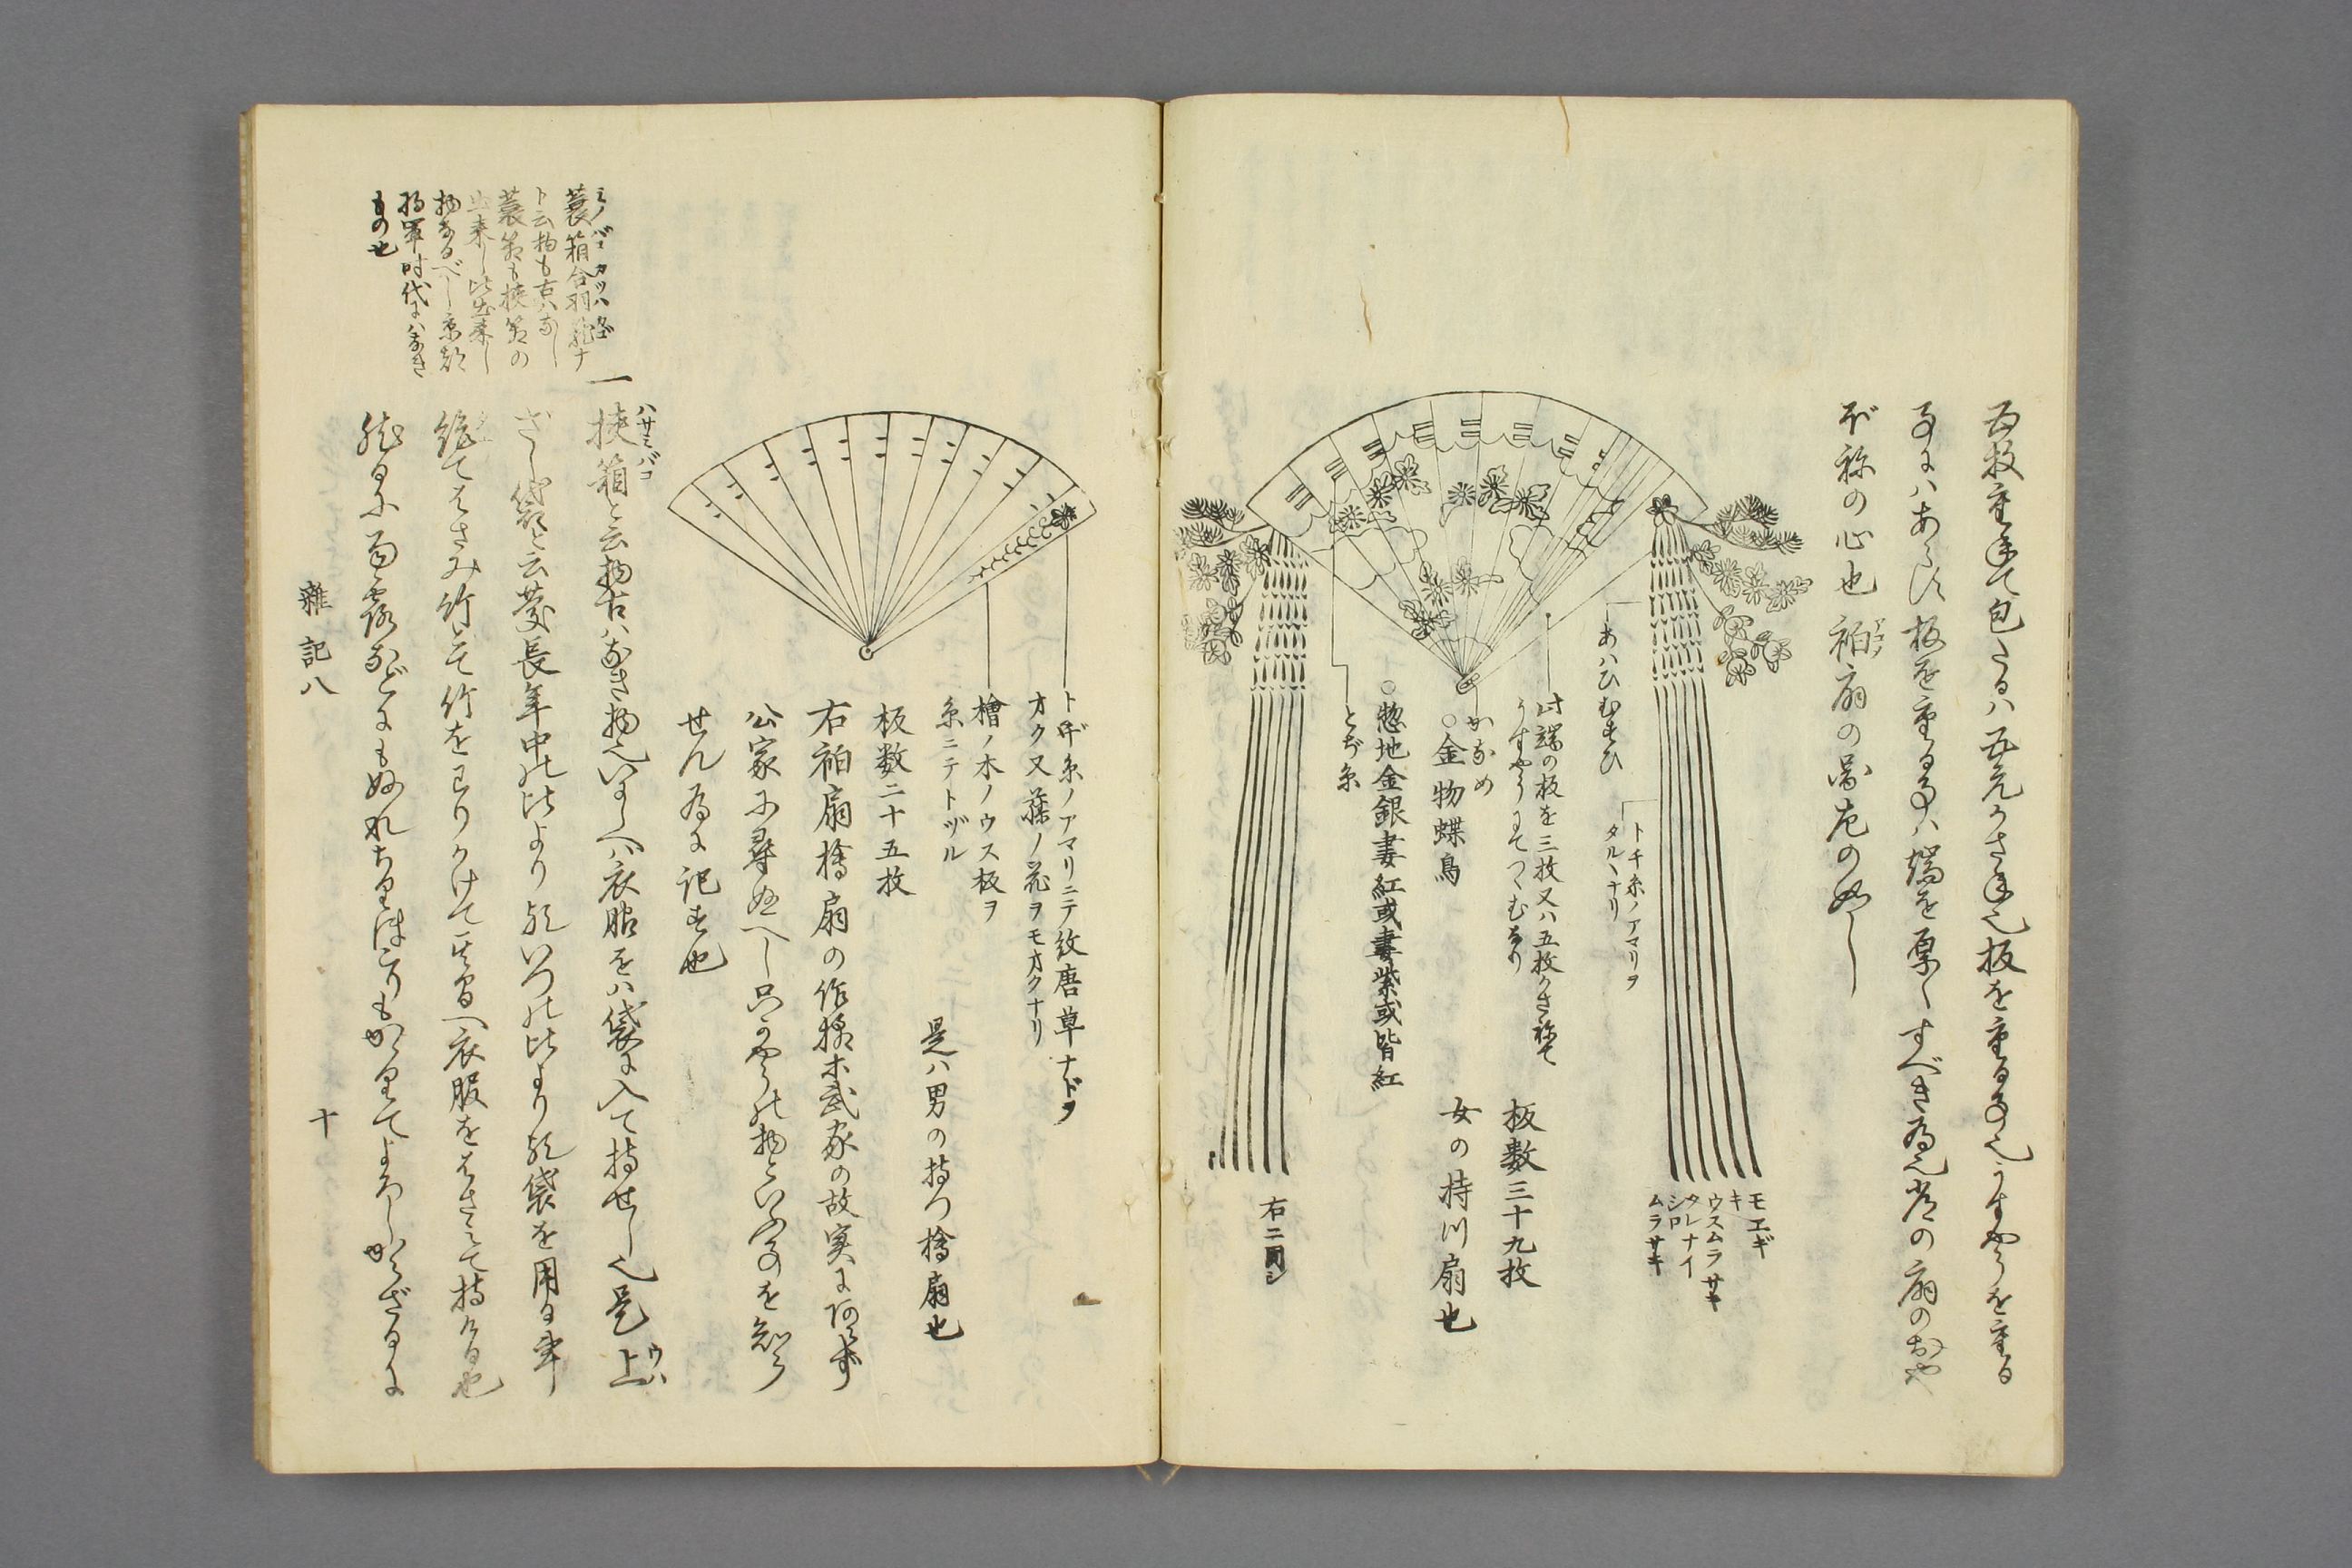 五枚重ねて包たるハ五元かさね也板を重る事也うすやうを重る
事にハあらす板を重る事ハ端を厚くすべき為也常の扇のおや
ぼねの心也袙扇の図左の如し
アコメ
あハひむすひ
トヂ糸ノアマリヲ
タルヽナリ
モエギ
キ
ウスムラサキ
クレナイ
シロ
ムラサキ
此端の板を三枚又ハ五枚かさねて
うすやうにてつゝむなり
板数三十九枚
女の持川扇也
かなめ
○金物蝶鳥
○惣地金銀妻紅或妻紫或皆紅
とぢ糸
右ニ同シ
トヂ糸ノアマリニテ紋唐草ナドヲ
オク又藤ノ花ヲモオクナリ
檜ノ木ノウス板ヲ
糸ニテトヅル
是ハ男の持つ檜扇也
板数二十五枚
右袙扇檜扇の作様ハ武家の故実にあらず
公家に尋ぬへし只かやうの物といふ事を知ら
せん為に記す也
一挟箱と云物古ハなき物也いにしへハ衣服をハ袋に入て持せし也是上
ハサミバコ
ウハ
ざし袋と云慶長年中の比より
の比より
袋を用る事
絶てはさみ竹とて竹をわりかけて其間へ衣服をはさミて持ける也
タエ
然るに雨露などにもぬれちりほこりもかゝりてよろしからざるに
蓑箱合羽籠ナ
ミノバコカツハカゴ
ト云物も古ハなし
蓑箱も挟箱の
出来し比出来し
物なるべし京都
将軍時代にハなき
もの也
雑記八
十